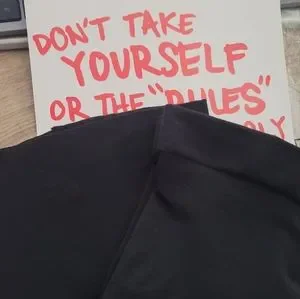 DON'T TAKE
YOURSELF
OR THE "RULES"